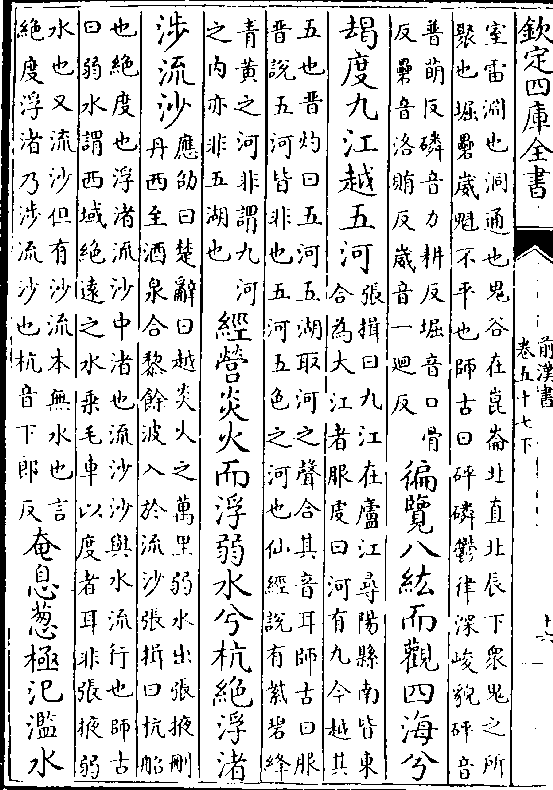 欽定四庫全書
前漢書
卷五十七下
十六
室雷淵也洞通也鬼谷在崑崙北直北辰下衆鬼之所
聚也堀礨崴魁不平也師古曰砰磷鬱律深峻貌砰音
普萌反磷音力耕反堀音口骨
反礨音洛賄反崴音一迴反
徧覽八紘而觀四海兮
朅度九江越五河
張揖曰九江在廬江尋陽縣南皆東
合為大江者服虔曰河有九今越其
五也晉灼曰五河五湖取河之聲合其音耳師古曰服
晉說五河皆非也五河五色之河也仙經說有紫碧絳
青黄之河非謂九河
之内亦非五湖也
經營炎火而浮弱水兮杭絶浮渚
涉流沙
應劭曰楚辭曰越炎火之萬里弱水出張掖刪
丹西至酒泉合黎餘波入於流沙張揖曰杭船
也絶度也浮渚流沙中渚也流沙沙與水流行也師古
曰弱水謂西域絶遠之水乗毛車以度者耳非張掖弱
水也又流沙但有沙流本無水也言
絶度浮渚乃涉流沙也杭音下郎反
奄息葱極氾濫水